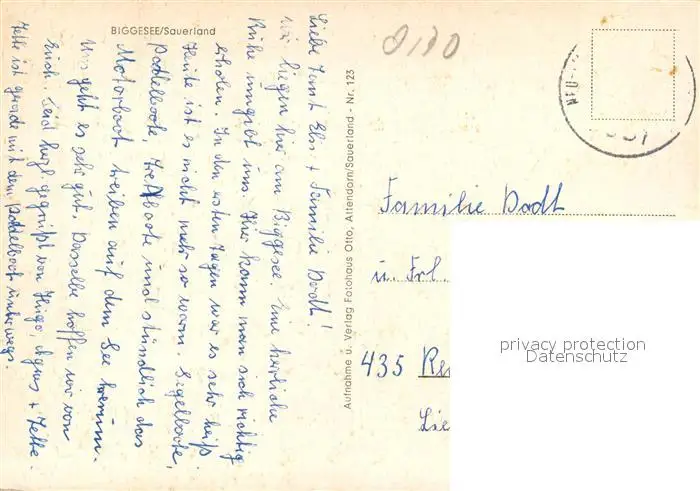 BIGGESEE/Sauerland
Liebe Tante Els. + Familie Dodt!
Wir liegen hier am Biggesee. Eine herrliche
Ruhe umgibt uns. Hier kann man sich richtig
erholen. In den ersten Tagen war es sehr heiß.
Heute ist es nicht mehr so warm. Segelboote,
Paddelboote, Tretboote und stündlich das
Motorboot treiben auf dem See herum.
Uns geht es sehr gut. Dasselbe hoffen wir von
Euch. Seid herzl. gegrüßt von Hugo, Agnes + Jette.
Jette ist gerade mit dem Paddelboot unterwegs.
Aufnahme u. Verlag Fotohaus Otto, Attendorn/Sauerland - Nr. 123
0170
Familie Dodt
u. Frl.
435 Re
Lie
privacy protection
Datenschutz